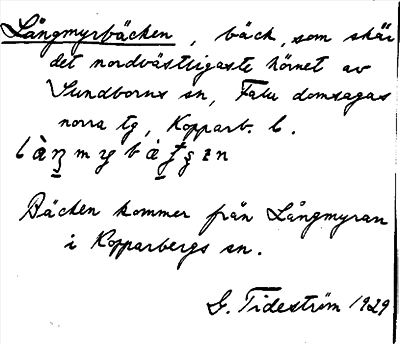 Långmyrbäcken, bäck, som skär
det nordvästligaste hörnet av
Sundborns sn, Falu domsagas
norra tg, Kopparb. l.
Bäcken kommer från Långmyran
i Kopparbergs sn.
G. Tideström 1929